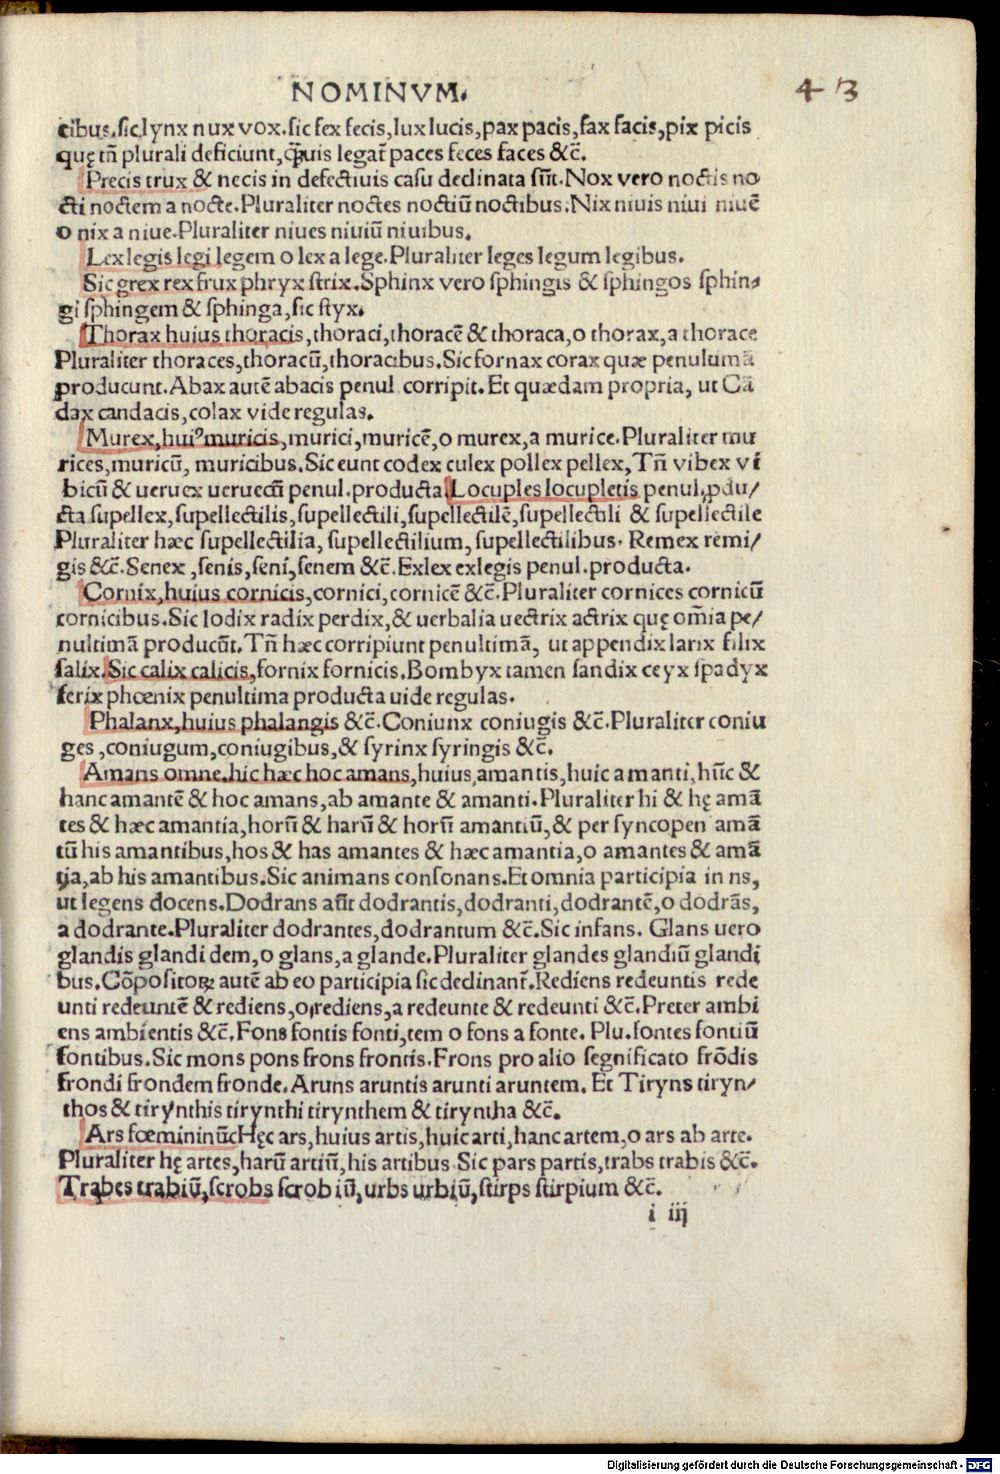 NOMINVM. 43
cibus.sic lynx nux vox.sic fex fecis,lux lucis,pax pacis,fax facis,pix picis
quę tñ plurali deficiunt,q̃uis legat̃ paces feces faces &c̃.
Precis trux & necis in defectiuis casu declinata sũt.Nox vero noctis no
cti noctem a nocte.Pluraliter noctes noctiũ noctibus.Nix niuis niui niuẽ
o nix a niue.Pluraliter niues niuiũ niuibus.
Lex legis legi legem o lex a lege.Pluraliter leges legum legibus.
Sic grex rex frux phryx strix.Sphinx vero sphingis & sphingos sphin⸗
gi sphingem & sphinga,sic styx.
Thorax huius thoracis,thoraci,thoracẽ & thoraca,o thorax,a thorace
Pluraliter thoraces,thoracũ,thoracibus.Sic fornax corax quæ penultimã
producunt.Abax autẽ abacis penul corripit.Et quædam propria, ut Cã
dax candacis,colax vide regulas.
Murex,huiꝰ muricis,murici,muricẽ,o murex,a murice.Pluraliter mu
rices,muricũ, muricibus.Sic eunt codex culex pollex pellex,Tñ vibex vi
bicũ & ueruex ueruecũ penul.producta.Locuples locupletis penul.ꝓdu/
cta supellex,supellectilis,supellectili,supellectilẽ,supellectili & supellectile
Pluraliter hæc supellectilia, supellectilium, supellectilibus. Remex remi/
gis &c̃.Senex ,senis,seni,senem &c̃.Exlex exlegis penul.producta.
Cornix,huius cornicis,cornici,cornicẽ &c̃.Pluraliter cornices cornicũ
cornicibus.Sic lodix radix perdix,& uerbalia uectrix actrix quę om̃ia pe/
nultimã producũt.Tñ hæc corripiunt penultimã, ut appendix larix filix
salix.Sic calix calicis,fornix fornicis.Bombyx tamen sandix ceyx spadyx
ferix phœnix penultima producta uide regulas.
Phalanx,huius phalangis &c̃.Coniunx coniugis &c̃.Pluraliter coniu
ges ,coniugum,coniugibus,& syrinx syringis &c̃.
Amans omne.hic hæc hoc amans,huius,amantis,huic amanti,hũc &
hanc amantẽ & hoc amans,ab amante & amanti.Pluraliter hi & hę amã
tes & hæc amantia,horũ & harũ & horũ amantiũ,& per syncopen amã
tũ his amantibus,hos & has amantes & hæc amantia,o amantes & amã
tia,ab his amantibus.Sic animans consonans.Et omnia participia in ns,
ut legens docens.Dodrans aũt dodrantis,dodranti,dodrantẽ,o dodrãs,
a dodrante.Pluraliter dodrantes,dodrantum &c̃.Sic infans. Glans uero
glandis glandi dem,o glans,a glande.Pluraliter glandes glandiũ glandi
bus.Cõpositoꝝ autẽ ab eo participia sic declinant̃.Rediens redeuntis rede
unti redeuntẽ & rediens,o rediens,a redeunte & redeunti &c̃.Preter ambi
ens ambientis &c̃.Fons fontis fonti,tem o fons a fonte. Plu.fontes fontiũ
fontibus.Sic mons pons frons frontis.Frons pro alio segnificato frõdis
frondi frondem fronde.Aruns aruntis arunti aruntem. Et Tiryns tiryn/
thos & tirynthis tirynthi tirynthem & tiryntha &c̃.
Ars fœmininũc Hęc ars,huius artis,huic arti,hanc artem,o ars ab arte.
Pluraliter hę artes,harũ artiũ,his artibus Sic pars partis,trabs trabis &c̃.
Trabes trabiũ,scrobs scrobiũ,urbs urbiũ,stirps stirpium &c̃.
i iij
Digitalisierung gefördert durch die Deutsche Forschungsgemeinschaft - DFG